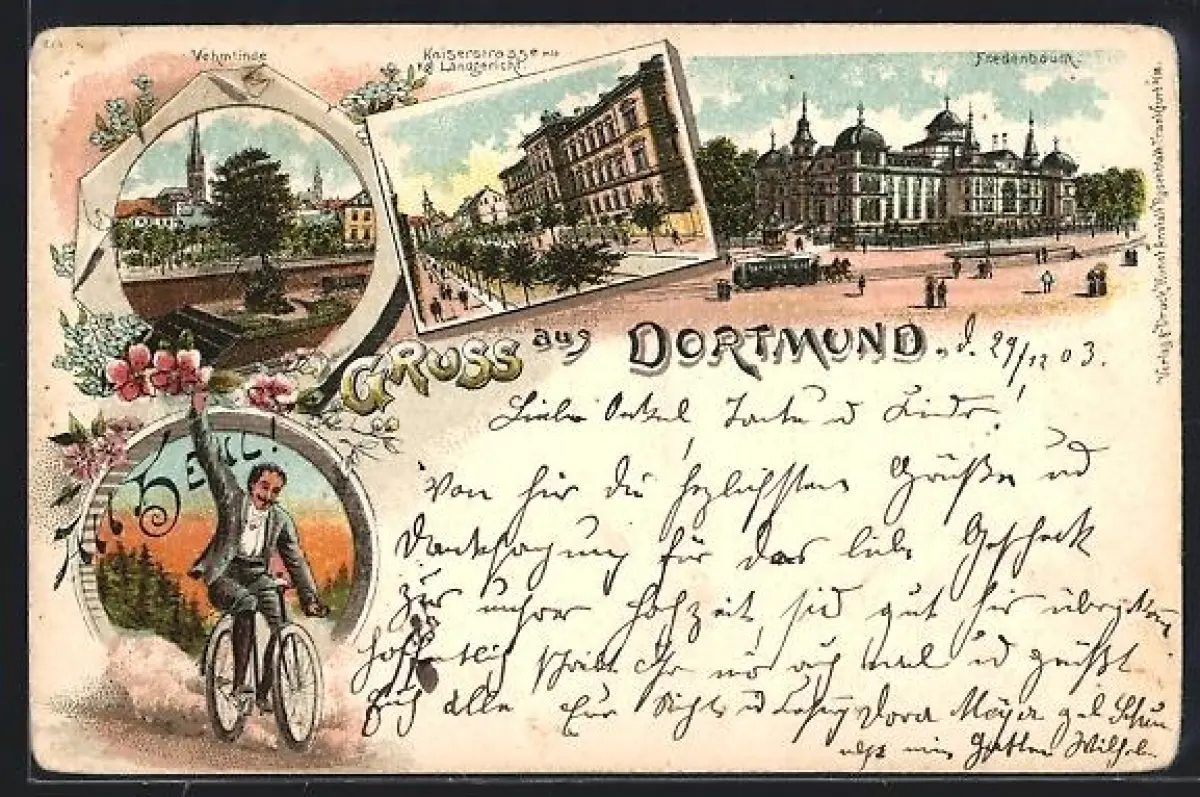 Vehmlinde
Kaiserstrasse mit
Kgl Landgericht
Fredenbaum.
GRUSS aus DORTMUND, d. 29/12 03.
HEIL!
Liebe Onkel Tante u Kinder!
Von hier die herzlichsten Grüße und
Danksagung für das liebe Geschenk
zur unserer Hochzeit, sind gut hier
hoffentlich schreibt Ihr mir auch mal u grüßt
Euch alle Eure Nichte u Dora Meyer geb
nebst mein Gatten Wilhelm
Verlag u Druck